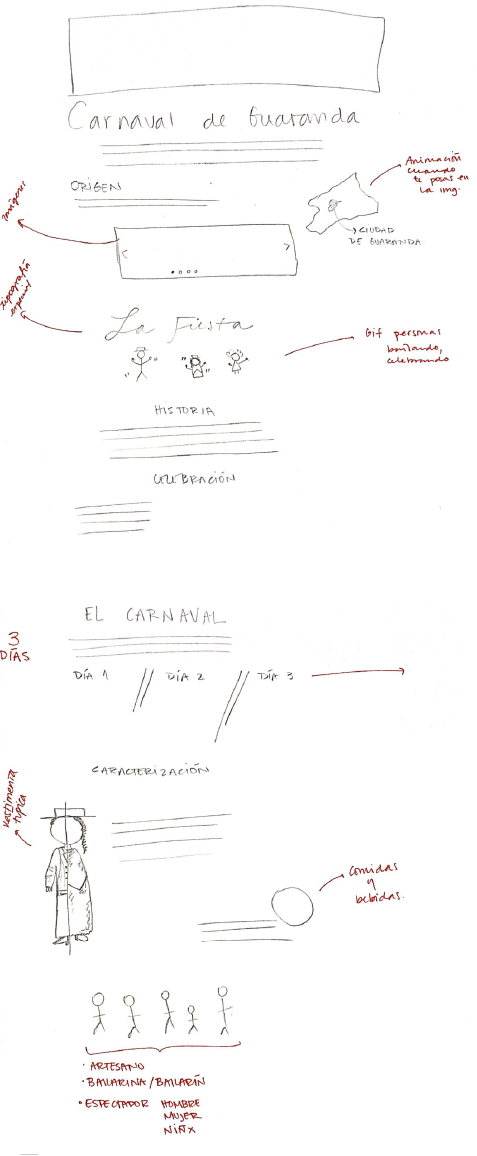 Carnaval de Guaranda
Animación
cuando
te posas en
la img.
ORIGEN
Imágenes
→ CIUDAD
DE GUARANDA
tipografía
especial
La Fiesta
Gif personas
bailando,
celebrando
HISTORIA
CELEBRACIÓN
EL CARNAVAL
3
DÍAS
DÍA 1 // DÍA 2 // DÍA 3
CARACTERIZACIÓN
Vestimenta
típica
Comidas
y
bebidas.
· ARTESANO
· BAILARINA/BAILARÍN
· ESPECTADOR HOMBRE
MUJER
NIÑX